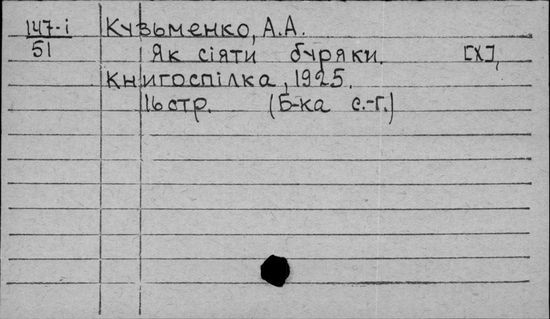 147-і Кузьменко, А.А.
51 Як сіяти буряки. [Х],
Книгоспілка, 1925.
16 стр. (Б-ка с.-г.)